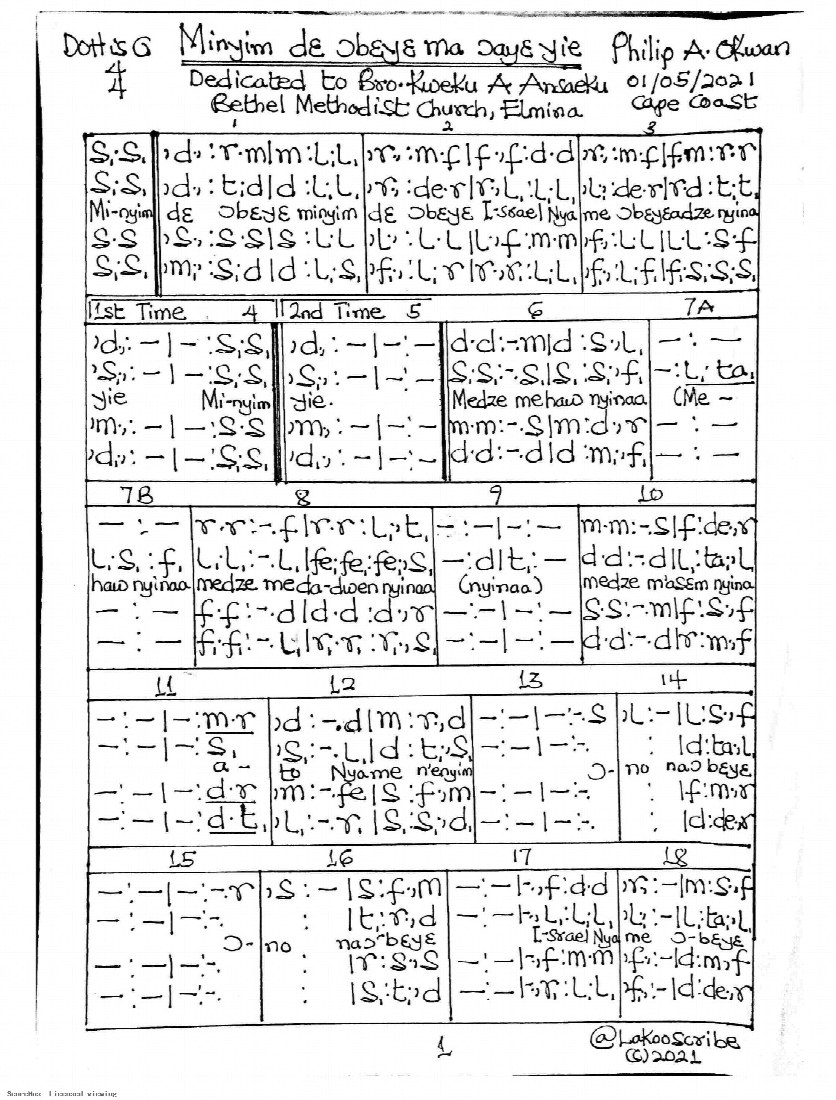 Doh is G Minyim dɛ ɔbɛyɛ ma ɔayɛ yie Philip A. Okwan
4
4
Dedicated to Bro. Kweku A Ansaeku 01/05/2021
Bethel Methodist Church, Elmina Cape Coast
1 2 3
S₁.S₁ | ,d., :r.m|m :L₁.L₁ | ,r., :m.f|f.,f :d.d | ,r., :m.f|f.m :r.r
S₁.S₁ | ,d., :t₁.d|d :L₁.L₁ | ,r., :de.r|r.,L₁ :L₁.L₁ | ,L₁., :de.r|r.d :t₁.t₁
Mi-nyim dɛ ɔbɛyɛ minyim dɛ ɔbɛyɛ I-srael Nya me ɔbɛyɛadze nyina
S.S | ,S., :S.S|S :L.L | ,L., :L.L|L.,f :m.m | ,f., :L.L|L.L :S.f
S₁.S₁ | ,m., :S₁.d|d :L₁.S₁ | ,f₁., :L₁.r|r.,r :L₁.L₁ | ,f₁., :L₁.f₁|f₁.S₁ :S₁.S₁
1st Time 4 2nd Time 5 6 7A
,d., :-|- :S₁.S₁ | ,d., :-|- :- | d.d :-.m|d :S₁.,L₁ | - :-
,S₁., :-|- :S₁.S₁ | ,S₁., :-|- :- | S₁.S₁ :-.S₁|S₁ :S₁.,f₁ | - :L₁.ta₁
yie Mi-nyim yie. Medze mehaw nyinaa (Me -
,m., :-|- :S.S | ,m., :-|- :- | m.m :-.S|m :d.,r | - :-
,d., :-|- :S₁.S₁ | ,d., :-|- :- | d.d :-.d|d :m₁.,f₁ | - :-
7B 8 9 10
- :- | r.r :-.f|r.r :L₁.,t₁ | - :-|- :- | m.m :-.S|f :de.,r
L₁.S₁ :f₁ | L₁.L₁ :-.L₁|fe₁.fe₁ :fe₁.,S₁ | - :d|t₁ :- | d.d :-.d|L₁ :ta₁.,L₁
haw nyinaa medze meda-dwen nyinaa (nyinaa) medze m'asɛm nyina
- :- | f.f :-.d|d.d :d.,r | - :-|- :- | S.S :-.m|f :S.,f
- :- | f₁.f₁ :-.L₁|r₁.r₁ :r₁.,S₁ | - :-|- :- | d.d :-.d|r :m.,f
11 12 13 14
- :-|- :m.r | ,d :-.d|m :r.,d | - :-|- :-.S | ,L :-|L :S.,f
- :-|- :S₁ | ,S₁ :-.L₁|d :t₁.,S₁ | - :-|- :-. | : |d :ta₁.,L₁
a- to Nyame n'enyim ɔ- no naɔbɛyɛ
- :-|- :d.r | ,m :-.fe|S :f.,m | - :-|- :-. | : |f :m.,r
- :-|- :d.t₁ | ,L₁ :-.r|S₁ :S₁.,d | - :-|- :-. | : |d :de.,r
15 16 17 18
- :-|- :-.r | ,S :-|S :f.,m | - :-|-.,f :d.d | ,r., :-|m :S.,f
- :-|- :-. | : |t₁ :r.,d | - :-|-.,L₁ :L₁.L₁ | ,L₁., :-|L₁ :ta₁.,L₁
ɔ- no naɔ-bɛyɛ I-srael Nya me ɔ-bɛyɛ
- :-|- :-. | : |r :S.,S | - :-|-.,f :m.m | ,f., :-|d :m.,f
- :-|- :-. | : |S₁ :t₁.,d | - :-|-.,r :L₁.L₁ | ,f₁., :-|d :de.,r
1
@LaKooScribe
(C) 2021